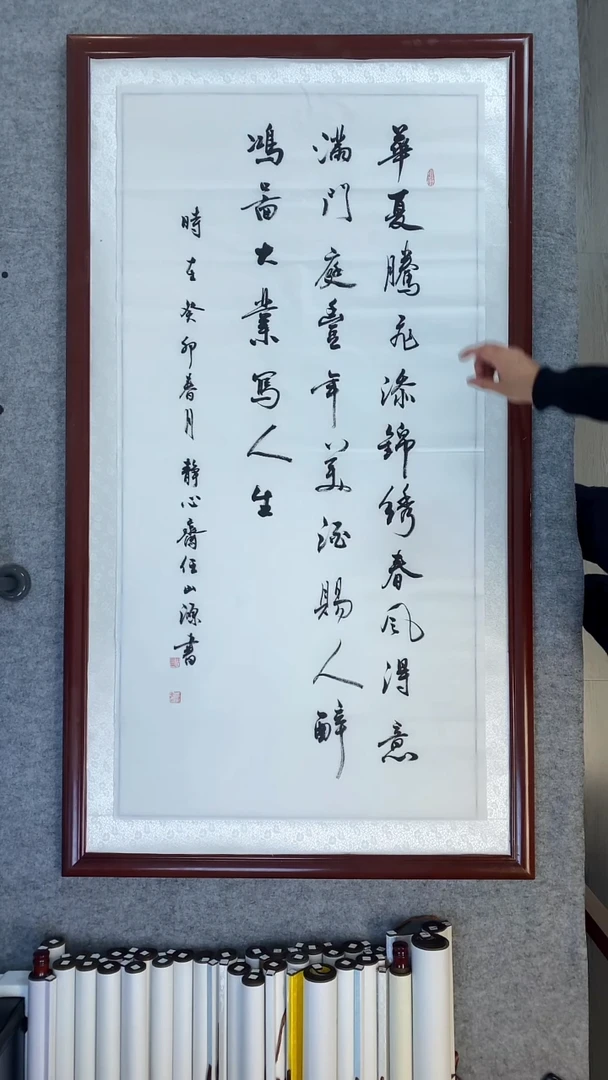 華夏騰飛添錦銹春風得意
满門庭豊年美酒賜人醉
鴻啚大業寫人生
時在癸卯春月静心齋任山源書